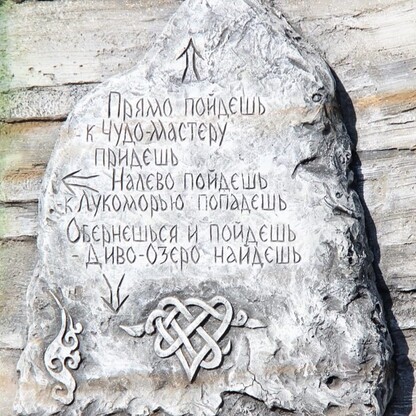 Прямо пойдёшь
- к Чудо-мастеру
придёшь
Налево пойдёшь
- к Лукоморью попадёшь
Обернёшься и пойдёшь
- Диво-озеро найдёшь